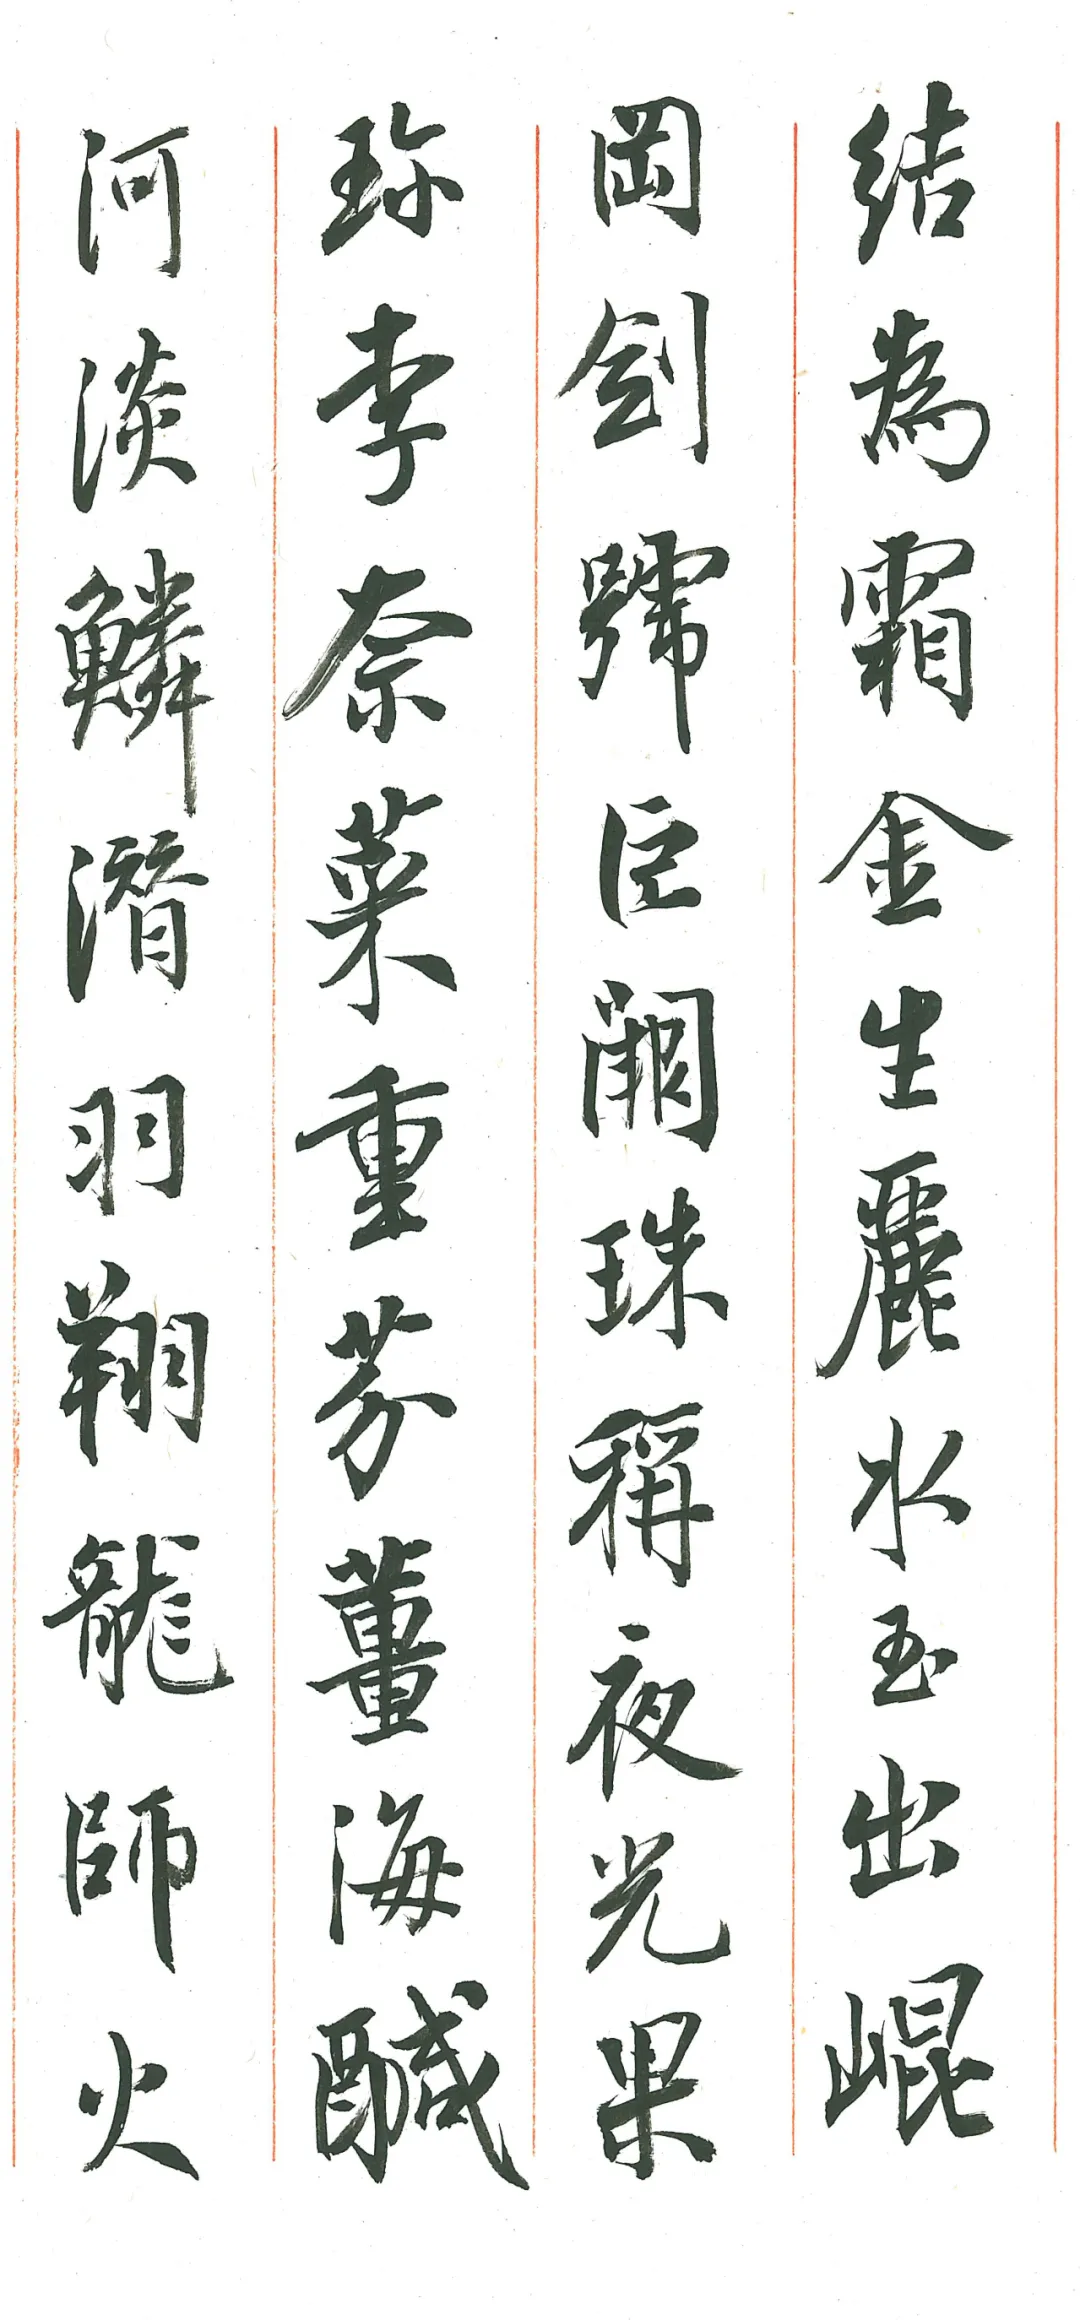 結為霜金生麗水玉出崐
岡劍號巨闕珠稱夜光果
珎李柰菜重芬薑海醎
河淡鱗潛羽翔龍師火